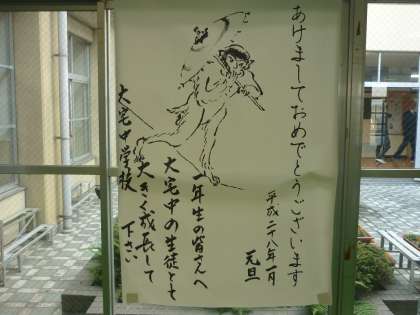 あけましておめでとうございます
平成二十八年一月
元旦
一年生の皆さんへ
大宅中の生徒として
大きく成長して
下さい
大宅中学校